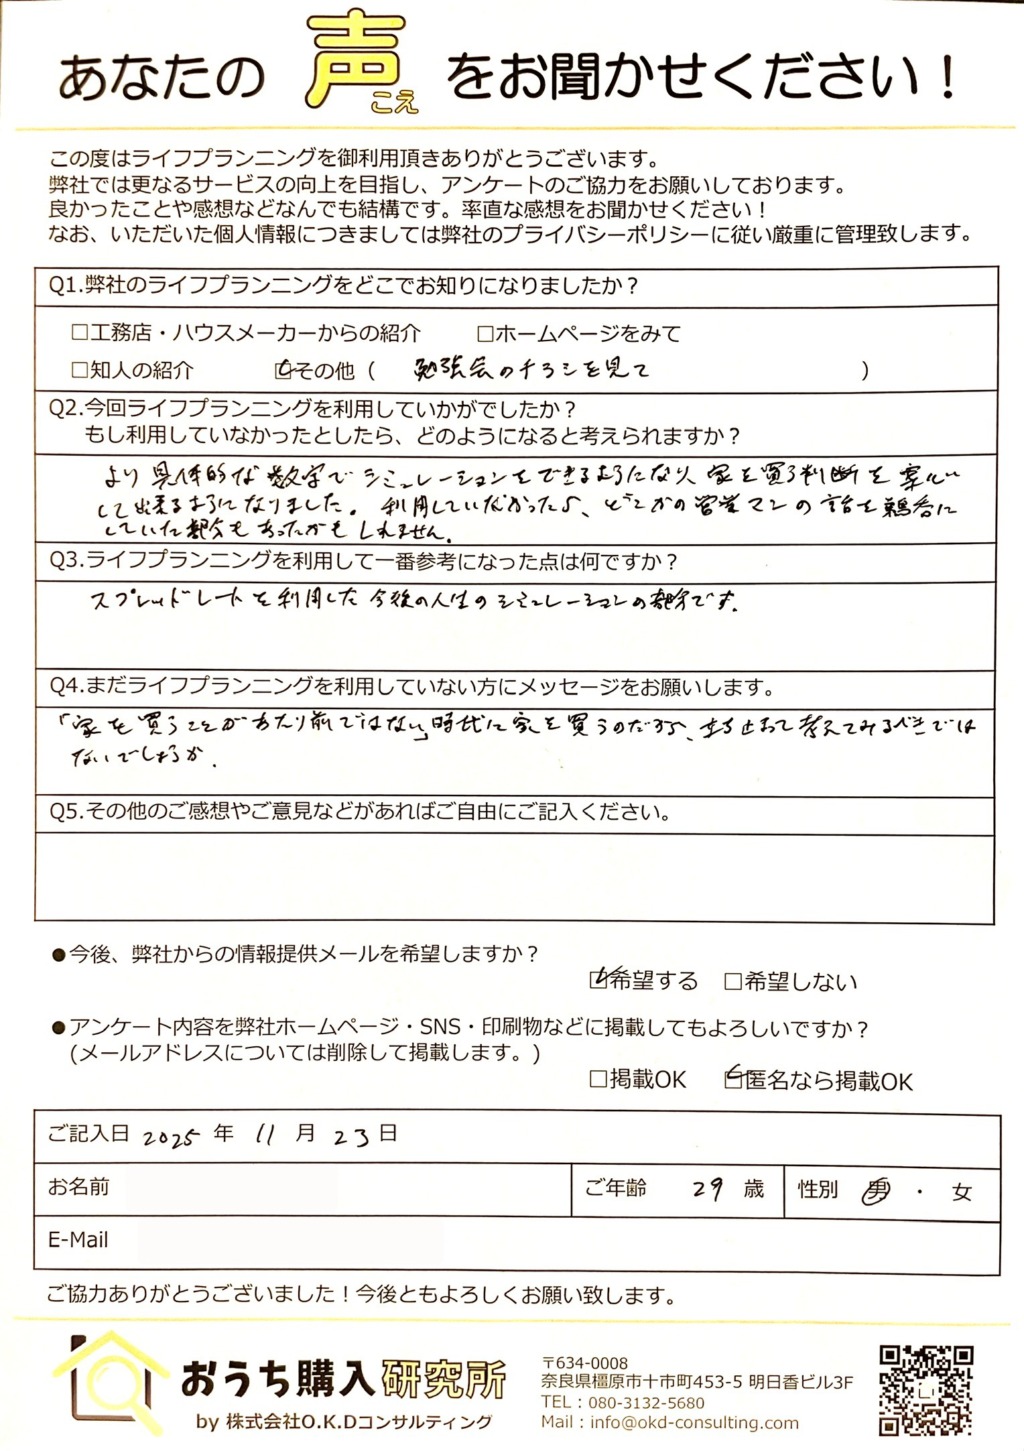 あなたの 声 をお聞かせください！
こえ
この度はライフプランニングを御利用頂きありがとうございます。
弊社では更なるサービスの向上を目指し、アンケートのご協力をお願いしております。
良かったことや感想などなんでも結構です。率直な感想をお聞かせください！
なお、いただいた個人情報につきましては弊社のプライバシーポリシーに従い厳重に管理致します。
Q1.弊社のライフプランニングをどこでお知りになりましたか？
□工務店・ハウスメーカーからの紹介 □ホームページをみて
□知人の紹介 ☑その他（ 勉強会のチラシを見て ）
Q2.今回ライフプランニングを利用していかがでしたか？
もし利用していなかったとしたら、どのようになると考えられますか？
より具体的な数字でシミュレーションをできるようになり、家を買う判断を安心
して出来るようになりました。利用していなかったら、どこかの営業マンの話を鵜呑に
していた部分もあったかもしれません。
Q3.ライフプランニングを利用して一番参考になった点は何ですか？
スプレッドシートを利用した今後の人生のシミュレーションの部分です。
Q4.まだライフプランニングを利用していない方にメッセージをお願いします。
「家を買うことがあたり前ではない」時代に家を買うのだから、立ち止まって考えてみるべきでは
ないでしょうか。
Q5.その他のご感想やご意見などがあればご自由にご記入ください。
●今後、弊社からの情報提供メールを希望しますか？
☑希望する □希望しない
●アンケート内容を弊社ホームページ・SNS・印刷物などに掲載してもよろしいですか？
(メールアドレスについては削除して掲載します。)
□掲載OK ☑匿名なら掲載OK
ご記入日 2025 年 11 月 23 日
お名前 ご年齢 29 歳 性別 男 ・ 女
E-Mail
ご協力ありがとうございました！今後ともよろしくお願い致します。
おうち購入研究所
by 株式会社O.K.Dコンサルティング
〒634-0008
奈良県橿原市十市町453-5 明日香ビル3F
TEL：080-3132-5680
Mail：info@okd-consulting.com